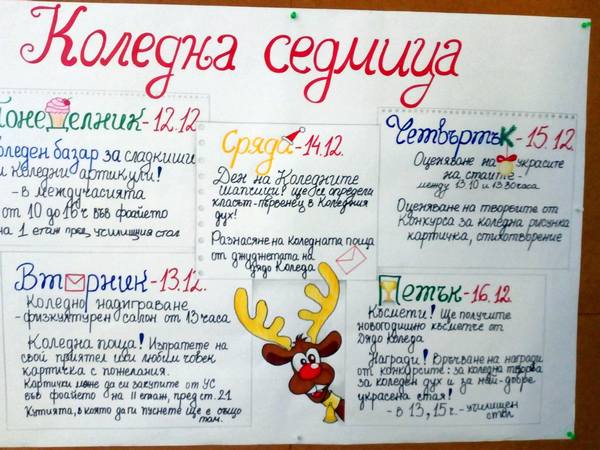 Коледна седмица
Понеделник-12.12
Коледен базар за сладкиши
и коледни артикули!
- в междучасията
от 10 до 16 ч във фоайето
на 1 етаж пред училищния стол
Вторник-13.12.
Коледно надиграване
- физкултурен салон от 13 часа
Коледна поща! Изпратете на
свой приятел или любим човек
картичка с пожелания.
Картички може да си закупите от УС
във фоайето на II етаж, пред ст. 21
Кутията, в която да ги пуснете ще е също
там.
Сряда-14.12.
Ден на Коледните
шапчици! Ще се определи
класът-първенец в Коледния
дух!
Разнасяне на коледната поща
от джуджетата на
Дядо Коледа
Четвъртък-15.12
Оценяване на украсите
на стаите-!
между 13 10 и 13 30 часа
Оценяване на творбите от
Конкурса за коледна рисунка
картичка, стихотворение
Петък-16.12.
Късмети! Ще получите
новогодишно късметче от
Дядо Коледа
Награди! Връчване на награди
от конкурсите: за коледна творба
за коледен дух и за най-добре
украсена стая!
- в 13,15 ч. - училищен
стол